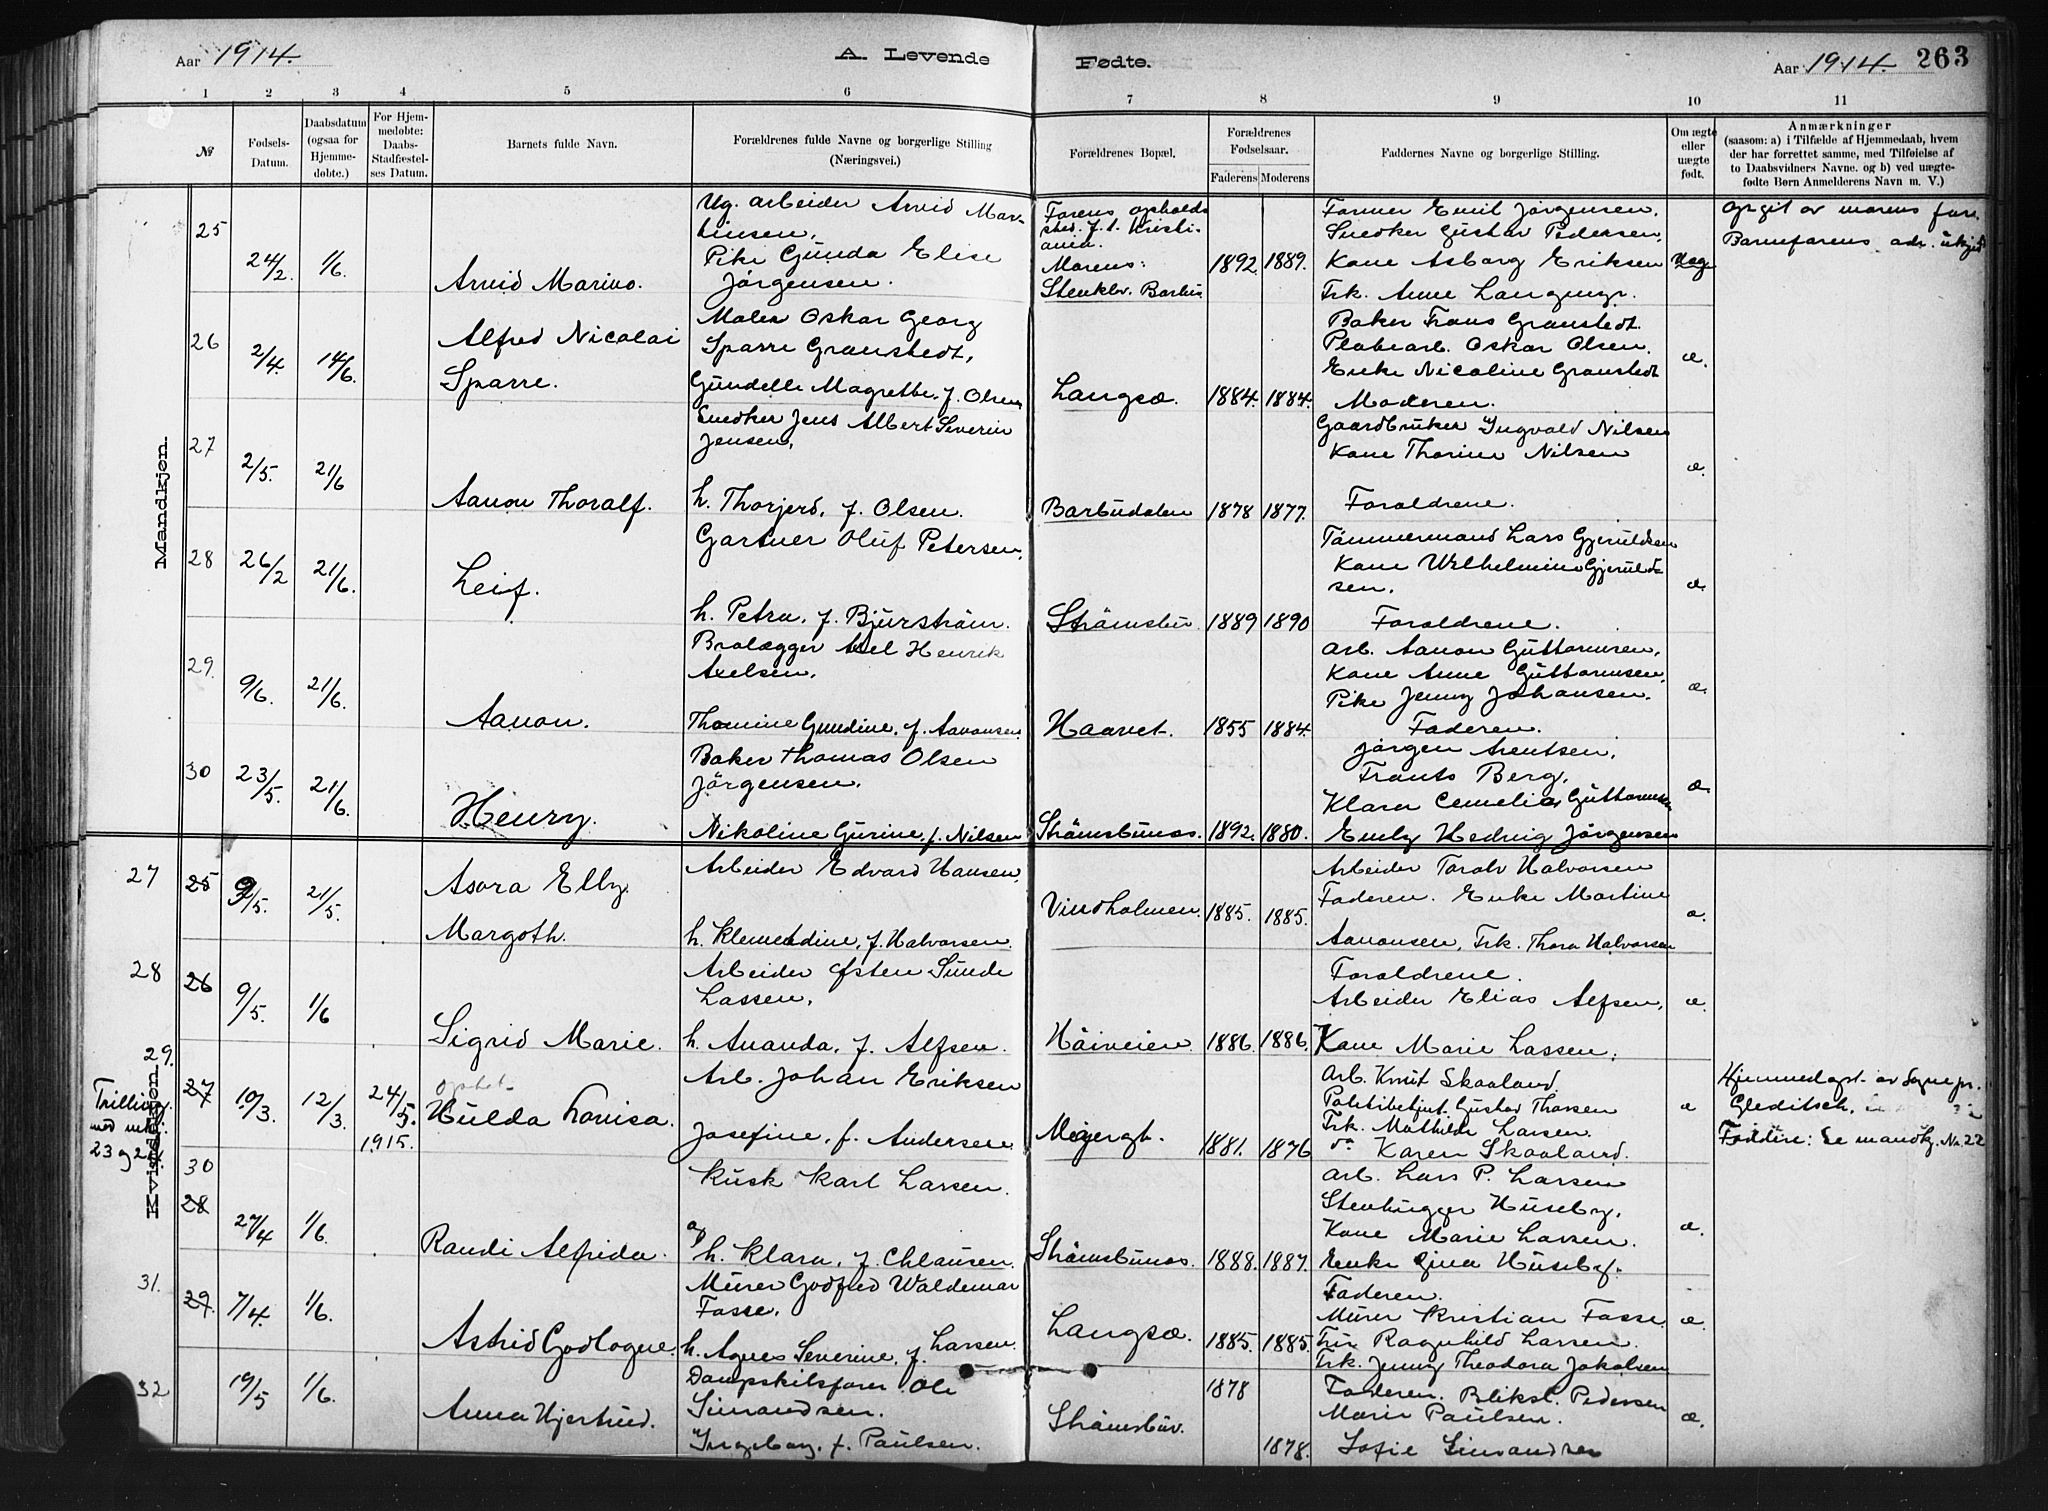 Aar 1914.
A. Levende Fødte.
Aar 1914. 263
1 2 3 4 5 6 7 8 9 10 11
№
Fødsels-Datum.
Daabsdatum (ogsaa for Hjemme-døbte.)
For Hjem-medøbte: Daabs-Stadfæstel-ses Datum.
Barnets fulde Navn.
Forældrenes fulde Navne og borgerlige Stilling (Næringsvei.)
Forældrenes Bopæl.
Forældrenes Fødselsaar.
Faderens Moderens
Faddernes Navne og borgerlige Stilling.
Om ægte eller uægte født.
Anmærkninger
(saasom: a) i Tilfælde af Hjemmedaab, hvem
der har forrettet samme, med Tilføielse af
to Daabsvidners Navne. og b) ved uægte-
fødte Børn Anmelderens Navn m. V.)
Mandkjøn.
25 24/2. 1/6. Arvid Marino.
Ug. arbeider Arvid Mar-
tinsen,
Pike Gunda Elise
Jörgensen.
Farens opholds
sted. f. t. Kristi-
ania.
Morens:
Stenklv. Barbu
1892 1889.
Farmer Emil Jörgensen.
Snedker Gustav Pedersen,
Kone Asborg Eriksen
Frk. Anne Langmyr.
Uæg
Opgit av morens far.
Barnefarens adr. ukjent
26 2/4. 14/6. Alfred Nicolai
Sparre.
Maler Oskar Georg
Sparre Granstedt,
Gundelle Magrethe. f. Olsen
Langsæ. 1884. 1884.
Baker Frans Granstedt.
Platearb. Oskar Olsen.
Enke Nicoline Granstedt
Moderen.
æ.
27 2/5. 21/6 Aanon Thoralf.
Snedker Jens Albert Severin
Jensen,
h. Thorjerd, f. Olsen.
Barbudalen 1878 1877.
Gaardbruker Yngvald Nilsen
Kone Thorine Nilsen
Foraldrene.
æ.
28 26/2 21/6. Leif.
Gartner Oluf Petersen,
h. Petra, f. Bjurström.
Strömsbu 1889 1890
Tömmermand Lars Gjeruldsen
Kone Wilhelmine Gjeruld-
sen.
Foraldrene.
æ
29. 9/6. 21/6. Aanon.
Brolægger Axel Henrik
Axelsen,
Thomine Gundine, f. Aanonsen.
Haavet. 1855 1884.
Arb. Aanon Guttormsen,
Kone Anne Guttormsen,
Pike Jenny Johansen.
Faderen.
æ.
30 23/5. 21/6. Henry.
Baker Thomas Olsen
Jörgensen.
Nikoline Gurine, f. Nilsen
Strömsbunes. 1892. 1880.
Jörgen Arentsen,
Frants Berg,
Klara Cemelia Guttormsen
Emly Hedvig Jörgensen
æ.
Kvindekjøn.
27 25 2/5. 21/5. Asora Elly
Margoth.
Arbeider Edvard Hansen,
h. Klementine, f. Halvorsen.
Vindholmen. 1885. 1885.
Arbeider Taralv Halvorsen
Faderen. Enke Martine
Aanonsen, Frk. Thora Halvorsen
æ.
28 26 9/5. 1/6 Sigrid Marie.
Arbeider Østen Sunde
Lassen,
h. Ananda, f. Alfsen.
Håiveien. 1886. 1886.
Foraldrene.
Arbeider Elias Alfsen,
Kone Marie Lassen.
æ.
29. 27 Trilling
med mk.
10/3. 12/3. 24/5. 1915.
Hulda Lovisa.
Arb. Johan Eriksen
Josefine, f. Andersen
1881. 1876
Arb. Knut Skaaland.
Politibetjent Gustav Thorsen
Frk. Mathilde Larsen.
do Karen Skaaland.
æ
Hjemmedøpt av Sognepr.
Gleditsch.
Faddere: Se mandkj. No. 22
30 28 27/4 1/6. Randi Alfrida.
Kusk Karl Larsen.
og
h. Klara, f. Chlausen.
Strömsbunes. 1888. 1887.
Arb. Lars P. Larsen
Stenhugger Huseby.
Kone Marie Larsen.
Enke Gina Huseby.
æ.
31. 29. 7/4. 1/6. Astrid Godlogne.
Murer Godfred Waldemar
Fosse,
h. Agnes Severine, f. Larsen.
Langsæ. 1885. 1885.
Faderen.
Murer Kristian Fosse.
Fru Ragnhild Larsen.
Frk. Jenny Theodora Jakobsen
æ.
32 19/5 1/6. Anna Hjertrud.
Dampskibsfører Ole
Simondsen.
Yngeborg, f. Paulsen.
Strömsbu. 1878 1878.
Faderen. Bliksl. Pedersen
Marie Paulsen.
Sofie Simondsen
æ.